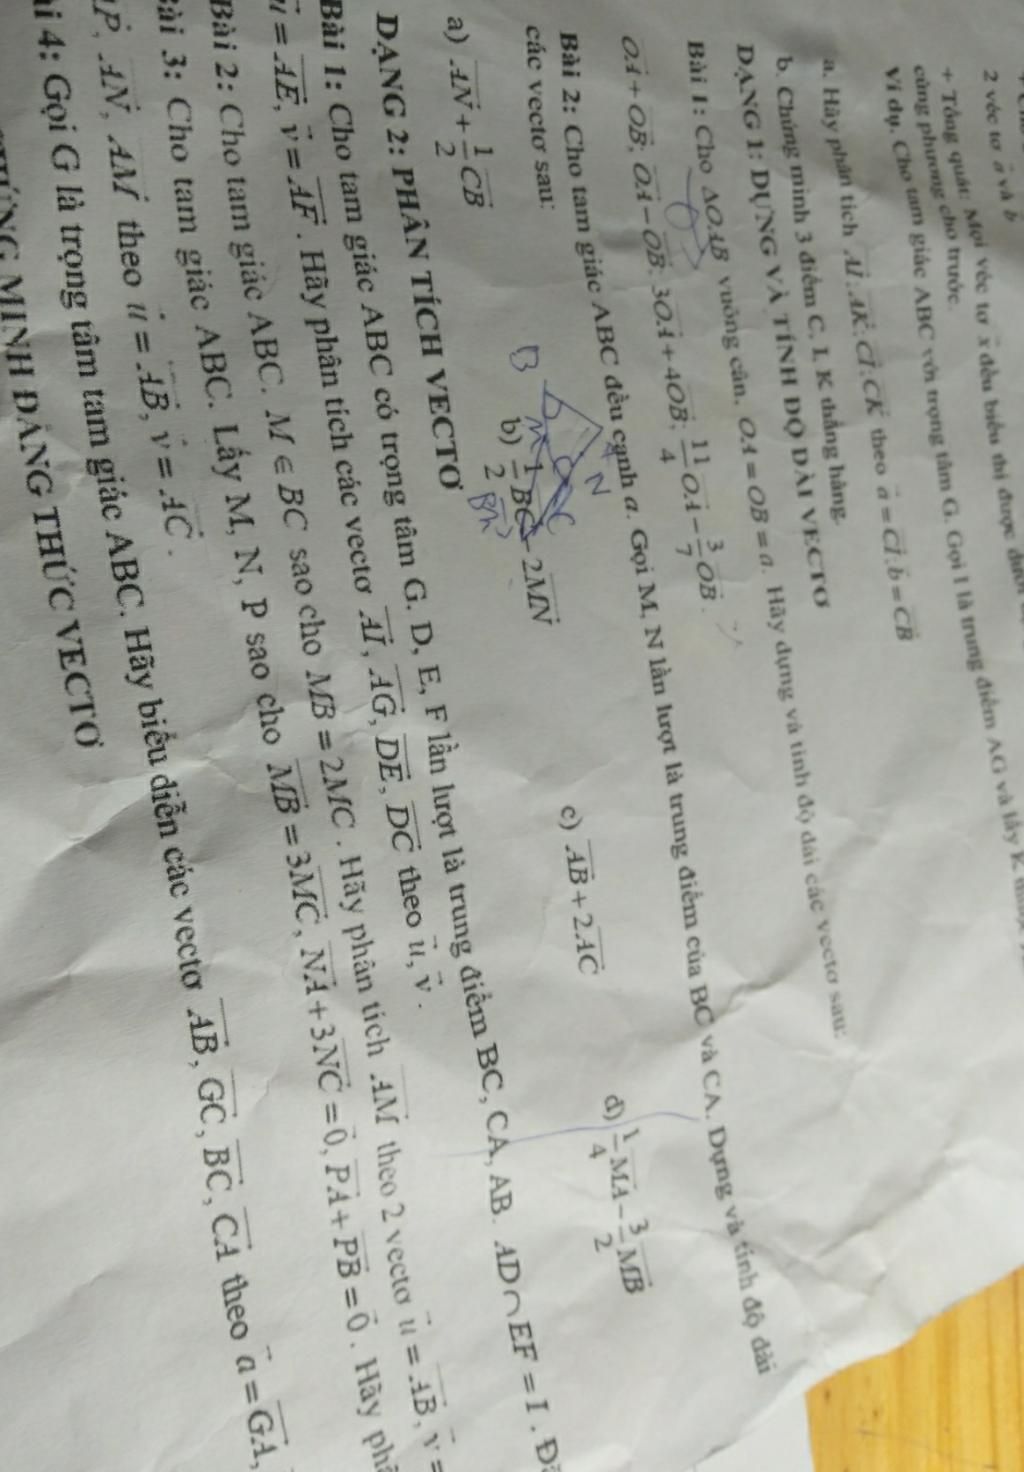 2 véc tơ a⃗ và b⃗
+ Tổng quát: Mọi véc tơ x⃗ đều biểu thị được dưới
cùng phương cho trước.
Ví dụ. Cho tam giác ABC với trọng tâm G. Gọi I là trung điểm AG và lấy K
a. Hãy phân tích AI⃗; AK⃗; CI⃗; CK⃗ theo a⃗ = CI⃗; b⃗ = CB⃗
b. Chứng minh 3 điểm C, I, K thẳng hàng.
DẠNG 1: DỰNG VÀ TÍNH ĐỘ DÀI VECTƠ
Bài 1: Cho ΔOAB vuông cân, OA = OB = a. Hãy dựng và tính độ dài các vectơ sau:
OA⃗ + OB⃗; OA⃗ − OB⃗; 3OA⃗ + 4OB⃗; 11/4 OA⃗ − 3/7 OB⃗.
Bài 2: Cho tam giác ABC đều cạnh a. Gọi M, N lần lượt là trung điểm của BC và CA. Dựng và tính độ dài
các vectơ sau:
a) AN⃗ + 1/2 CB⃗ b) 1/2 BC⃗ − 2MN⃗ c) AB⃗ + 2AC⃗ d) 1/4 MA⃗ − 3/2 MB⃗
B A N M C
DẠNG 2: PHÂN TÍCH VECTƠ
Bài 1: Cho tam giác ABC có trọng tâm G. D, E, F lần lượt là trung điểm BC, CA, AB. AD ∩ EF = I. Đặ
u⃗ = AE⃗, v⃗ = AF⃗. Hãy phân tích các vectơ AI⃗, AG⃗, DE⃗, DC⃗ theo u⃗, v⃗.
Bài 2: Cho tam giác ABC. M ∈ BC sao cho MB = 2MC. Hãy phân tích AM⃗ theo 2 vectơ u⃗ = AB⃗, v⃗ =
ài 3: Cho tam giác ABC. Lấy M, N, P sao cho MB⃗ = 3MC⃗, NA⃗ + 3NC⃗ = 0⃗, PA⃗ + PB⃗ = 0⃗. Hãy phâ
P⃗, AN⃗, AM⃗ theo u⃗ = AB⃗, v⃗ = AC⃗.
ài 4: Gọi G là trọng tâm tam giác ABC. Hãy biểu diễn các vectơ AB⃗, GC⃗, BC⃗, CA⃗ theo a⃗ = GA⃗,
ỨNG MINH ĐẲNG THỨC VECTƠ